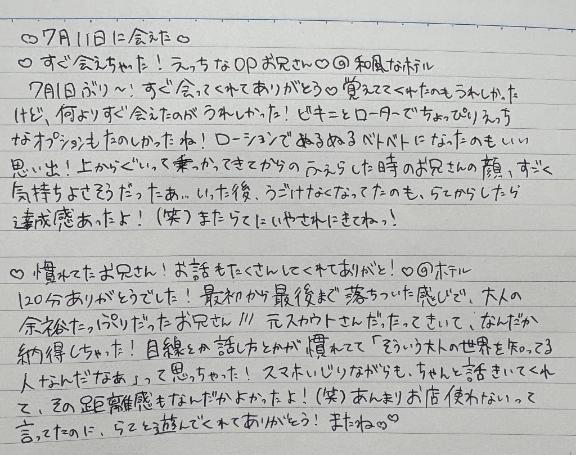 ♡7月11日に会えた♡
♡ すぐ会えちゃった！えっちなOPお兄さん♡@和風なホテル
7月1日ぶり〜！すぐ会ってくれてありがとう♡覚えててくれたのもうれしかった
けど、何よりすぐ会えたのがうれしかった！ビキニとローターでちょっぴりえっち
なオプションもたのしかったね！ローションでぬるぬるベトベトになったのもいい
思い出！上からぐいって乗っかってきてからのふぇらした時のお兄さんの顔、すごく
気持ちよさそうだったあ…いった後、うごけなくなってたのも、らてからしたら
達成感あったよ！(笑)またらてにいやされにきてねっ！
♡ 慣れてたお兄さん！お話もたくさんしてくれてありがと！♡@ホテル
120分ありがとうでした！最初から最後まで落ちついた感じで、大人の
余裕たっぷりだったお兄さん!!! 元スカウトさんだったってきいて、なんだか
納得しちゃった！目線とか話し方とかが慣れてて「そういう大人の世界を知ってる
人なんだなぁ」って思っちゃった！スマホいじりながらも、ちゃんと話きいてくれ
て、その距離感もなんだかよかったよ！(笑)あんまりお店使わないって
言ってたのに、らてと遊んでくれてありがとう！またね♡♡